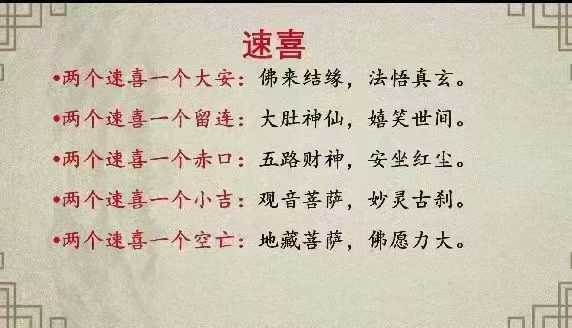 速喜
•两个速喜一个大安：佛来结缘，法悟真玄。
•两个速喜一个留连：大肚神仙，嬉笑世间。
•两个速喜一个赤口：五路财神，安坐红尘。
•两个速喜一个小吉：观音菩萨，妙灵古刹。
•两个速喜一个空亡：地藏菩萨，佛愿力大。